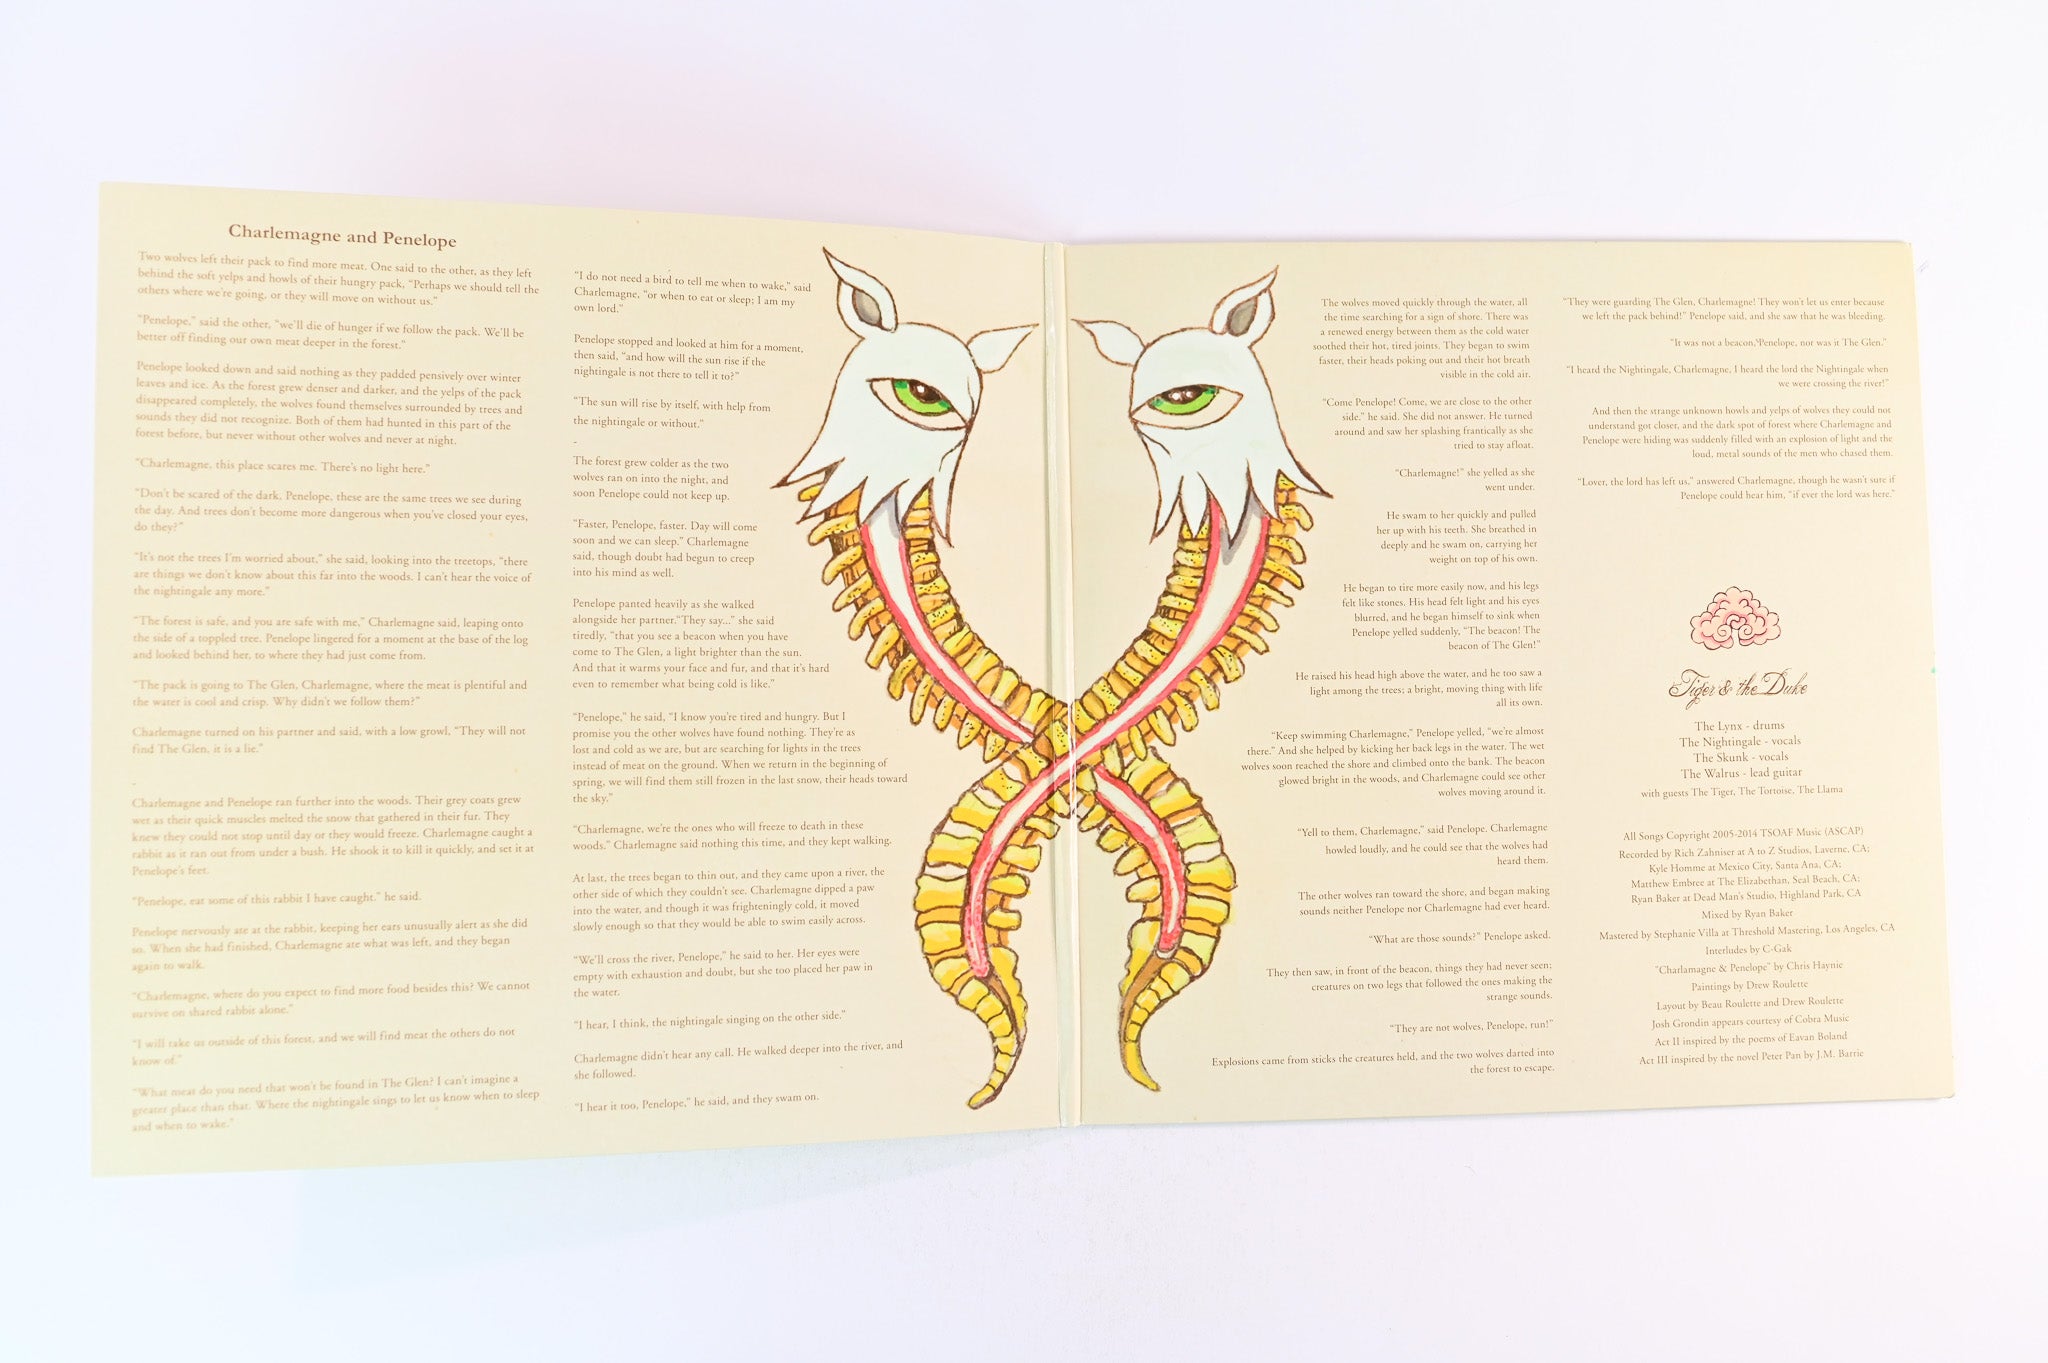 Charlemagne and Penelope
Two wolves left their pack to find more meat. One said to the other, as they left
behind the soft yelps and howls of their hungry pack, “Perhaps we should tell the
others where we're going, or they will move on without us.”
“Penelope,” said the other, “we'll die of hunger if we follow the pack. We'll be
better off finding our own meat deeper in the forest.”
Penelope looked down and said nothing as they padded pensively over winter
leaves and ice. As the forest grew denser and darker, and the yelps of the pack
disappeared completely, the wolves found themselves surrounded by trees and
sounds they did not recognize. Both of them had hunted in this part of the
forest before, but never without other wolves and never at night.
“Charlemagne, this place scares me. There's no light here.”
“Don't be scared of the dark, Penelope, these are the same trees we see during
the day. And trees don't become more dangerous when you've closed your eyes,
do they?”
“It's not the trees I'm worried about,” she said, looking into the treetops, “there
are things we don't know about this far into the woods. I can't hear the voice of
the nightingale any more.”
“The forest is safe, and you are safe with me,” Charlemagne said, leaping onto
the side of a toppled tree. Penelope lingered for a moment at the base of the log
and looked behind her, to where they had just come from.
“The pack is going to The Glen, Charlemagne, where the meat is plentiful and
the water is cool and crisp. Why didn't we follow them?”
Charlemagne turned on his partner and said, with a low growl, “They will not
find The Glen, it is a lie.”
-
Charlemagne and Penelope ran further into the woods. Their grey coats grew
wet as their quick muscles melted the snow that gathered in their fur. They
knew they could not stop until day or they would freeze. Charlemagne caught a
rabbit as it ran out from under a bush. He shook it to kill it quickly, and set it at
Penelope's feet.
“Penelope, eat some of this rabbit I have caught.” he said.
Penelope nervously ate at the rabbit, keeping her ears unusually alert as she did
so. When she had finished, Charlemagne ate what was left, and they began
again to walk.
“Charlemagne, where do you expect to find more food besides this? We cannot
survive on shared rabbit alone.”
“I will take us outside of this forest, and we will find meat the others do not
know of.”
“What meat do you need that won't be found in The Glen? I can't imagine a
greater place than that. Where the nightingale sings to let us know when to sleep
and when to wake.”
“I do not need a bird to tell me when to wake,” said
Charlemagne, “or when to eat or sleep; I am my
own lord.”
Penelope stopped and looked at him for a moment,
then said, “and how will the sun rise if the
nightingale is not there to tell it to?”
“The sun will rise by itself, with help from
the nightingale or without.”
-
The forest grew colder as the two
wolves ran on into the night, and
soon Penelope could not keep up.
“Faster, Penelope, faster. Day will come
soon and we can sleep.” Charlemagne
said, though doubt had begun to creep
into his mind as well.
Penelope panted heavily as she walked
alongside her partner.“They say...” she said
tiredly, “that you see a beacon when you have
come to The Glen, a light brighter than the sun.
And that it warms your face and fur, and that it's hard
even to remember what being cold is like.”
“Penelope,” he said, “I know you're tired and hungry. But I
promise you the other wolves have found nothing. They're as
lost and cold as we are, but are searching for lights in the trees
instead of meat on the ground. When we return in the beginning of
spring, we will find them still frozen in the last snow, their heads toward
the sky.”
“Charlemagne, we're the ones who will freeze to death in these
woods.” Charlemagne said nothing this time, and they kept walking.
At last, the trees began to thin out, and they came upon a river, the
other side of which they couldn't see. Charlemagne dipped a paw
into the water, and though it was frighteningly cold, it moved
slowly enough so that they would be able to swim easily across.
“We'll cross the river, Penelope,” he said to her. Her eyes were
empty with exhaustion and doubt, but she too placed her paw in
the water.
“I hear, I think, the nightingale singing on the other side.”
Charlemagne didn't hear any call. He walked deeper into the river, and
she followed.
“I hear it too, Penelope,” he said, and they swam on.
The wolves moved quickly through the water, all
the time searching for a sign of shore. There was
a renewed energy between them as the cold water
soothed their hot, tired joints. They began to swim
faster, their heads poking out and their hot breath
visible in the cold air.
“Come Penelope! Come, we are close to the other
side.” he said. She did not answer. He turned
around and saw her splashing frantically as she
tried to stay afloat.
“Charlemagne!” she yelled as she
went under.
He swam to her quickly and pulled
her up with his teeth. She breathed in
deeply and he swam on, carrying her
weight on top of his own.
He began to tire more easily now, and his legs
felt like stones. His head felt light and his eyes
blurred, and he began himself to sink when
Penelope yelled suddenly, “The beacon! The
beacon of The Glen!”
He raised his head high above the water, and he too saw a
light among the trees; a bright, moving thing with life
all its own.
“Keep swimming Charlemagne,” Penelope yelled, “we're almost
there.” And she helped by kicking her back legs in the water. The wet
wolves soon reached the shore and climbed onto the bank. The beacon
glowed bright in the woods, and Charlemagne could see other
wolves moving around it.
“Yell to them, Charlemagne,” said Penelope. Charlemagne
howled loudly, and he could see that the wolves had
heard them.
The other wolves ran toward the shore, and began making
sounds neither Penelope nor Charlemagne had ever heard.
“What are those sounds?” Penelope asked.
They then saw, in front of the beacon, things they had never seen;
creatures on two legs that followed the ones making the
strange sounds.
“They are not wolves, Penelope, run!”
Explosions came from sticks the creatures held, and the two wolves darted into
the forest to escape.
“They were guarding The Glen, Charlemagne! They won't let us enter because
we left the pack behind!” Penelope said, and she saw that he was bleeding.
“It was not a beacon, Penelope, nor was it The Glen.”
“I heard the Nightingale, Charlemagne, I heard the lord the Nightingale when
we were crossing the river!”
And then the strange unknown howls and yelps of wolves they could not
understand got closer, and the dark spot of forest where Charlemagne and
Penelope were hiding was suddenly filled with an explosion of light and the
loud, metal sounds of the men who chased them.
“Lover, the lord has left us,” answered Charlemagne, though he wasn't sure if
Penelope could hear him, “if ever the lord was here.”
Tiger & the Duke
The Lynx - drums
The Nightingale - vocals
The Skunk - vocals
The Walrus - lead guitar
with guests The Tiger, The Tortoise, The Llama
All Songs Copyright 2005-2014 TSOAF Music (ASCAP)
Recorded by Rich Zahniser at A to Z Studios, Laverne, CA;
Kyle Homme at Mexico City, Santa Ana, CA;
Matthew Embree at The Elizabethan, Seal Beach, CA;
Ryan Baker at Dead Man's Studio, Highland Park, CA
Mixed by Ryan Baker
Mastered by Stephanie Villa at Threshold Mastering, Los Angeles, CA
Interludes by C-Gak
“Charlamagne & Penelope” by Chris Haynie
Paintings by Drew Roulette
Layout by Beau Roulette and Drew Roulette
Josh Grondin appears courtesy of Cobra Music
Act II inspired by the poems of Eavan Boland
Act III inspired by the novel Peter Pan by J.M. Barrie